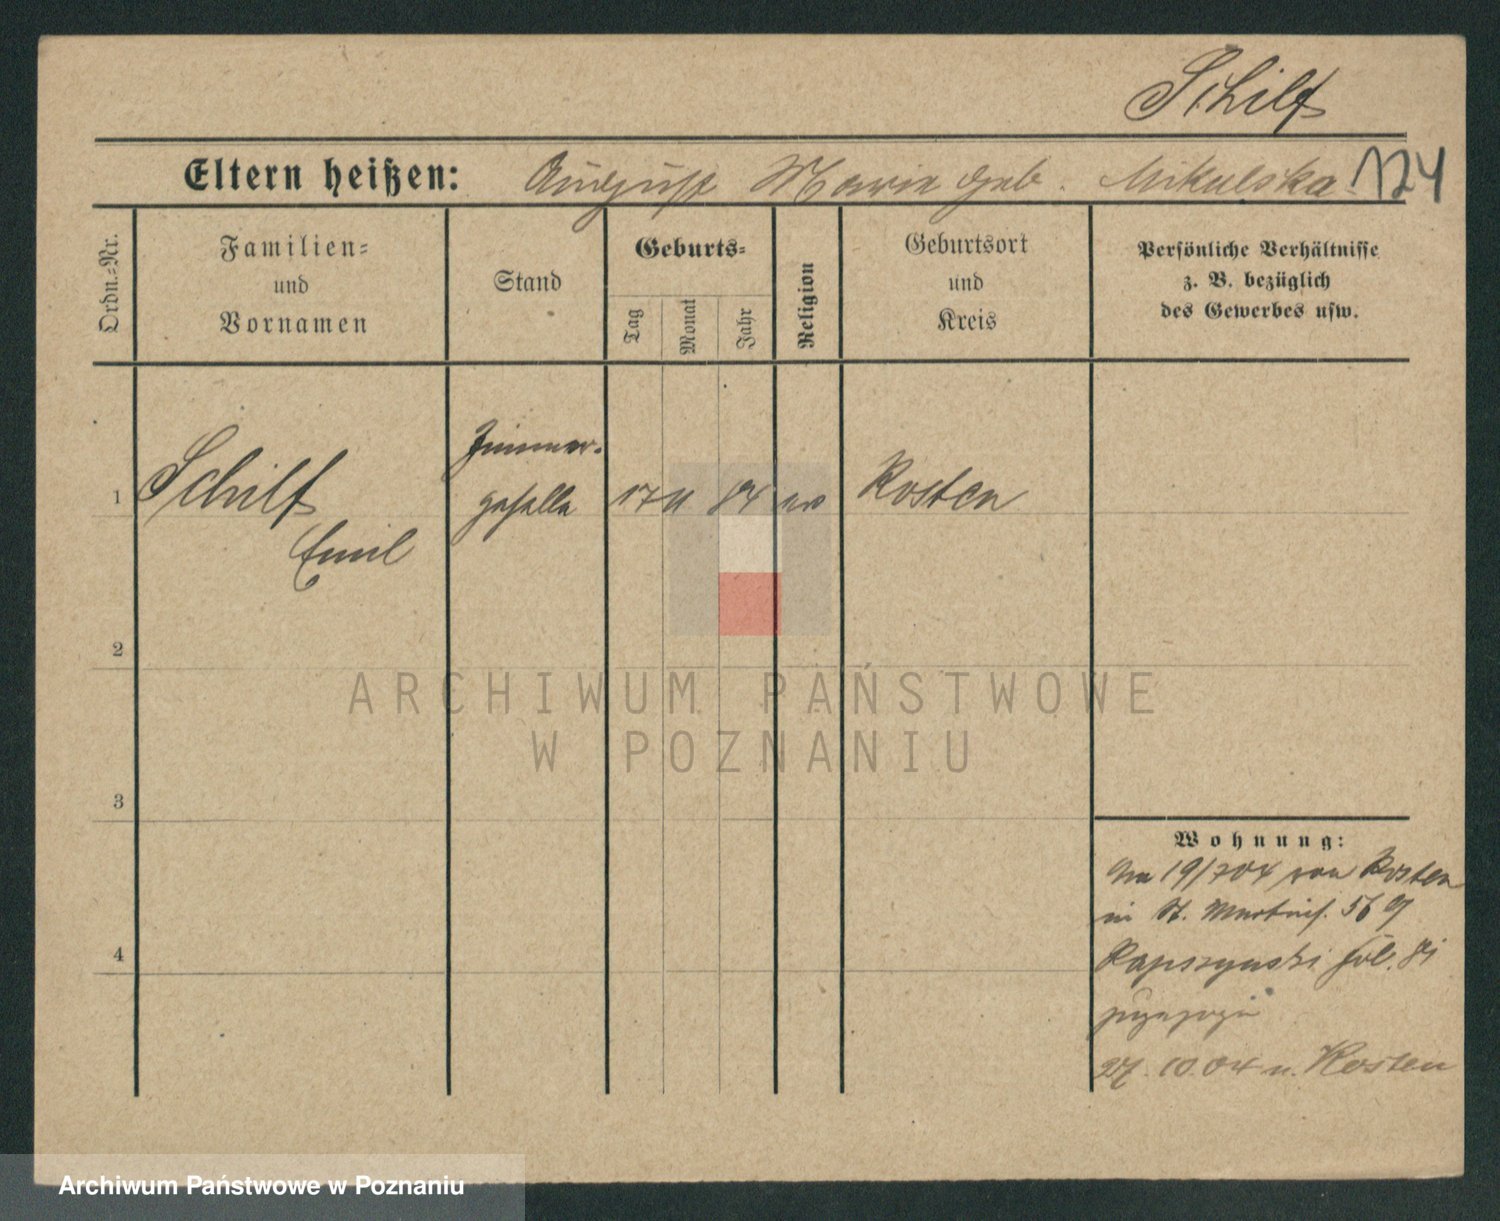 Schilf
Eltern heißen: August Marie geb. Mikulska 124
Ordn.=Nr.
Familien=
und
Vornamen
Stand
Geburts=
Tag
Monat
Jahr
Religion
Geburtsort
und
Kreis
Persönliche Verhältnisse
z. B. bezüglich
des Gewerbes usw.
1
Schilf
Emil
Zimmer-
geselle
17
84
ev
Kosten
2
3
4
ARCHIWUM PAŃSTWOWE
W POZNANIU
Wohnung:
19/704 von Kosten
in St. Martins. 56
zugezogen
27.10.04 n. Kosten
Archiwum Państwowe w Poznaniu